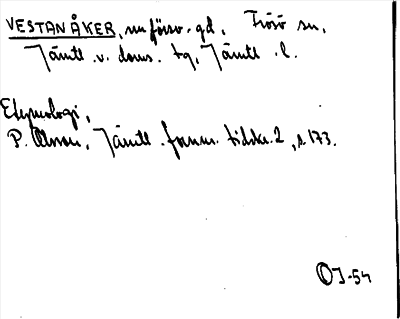 VESTANÅKER, nu försv. gd, Frösö sn,
Jämtl. v. doms. tg, Jämtl. l.
Etymologi,
P. Olsson, Jämtl. fornm. tidskr. 2, s. 173.
OJ-54